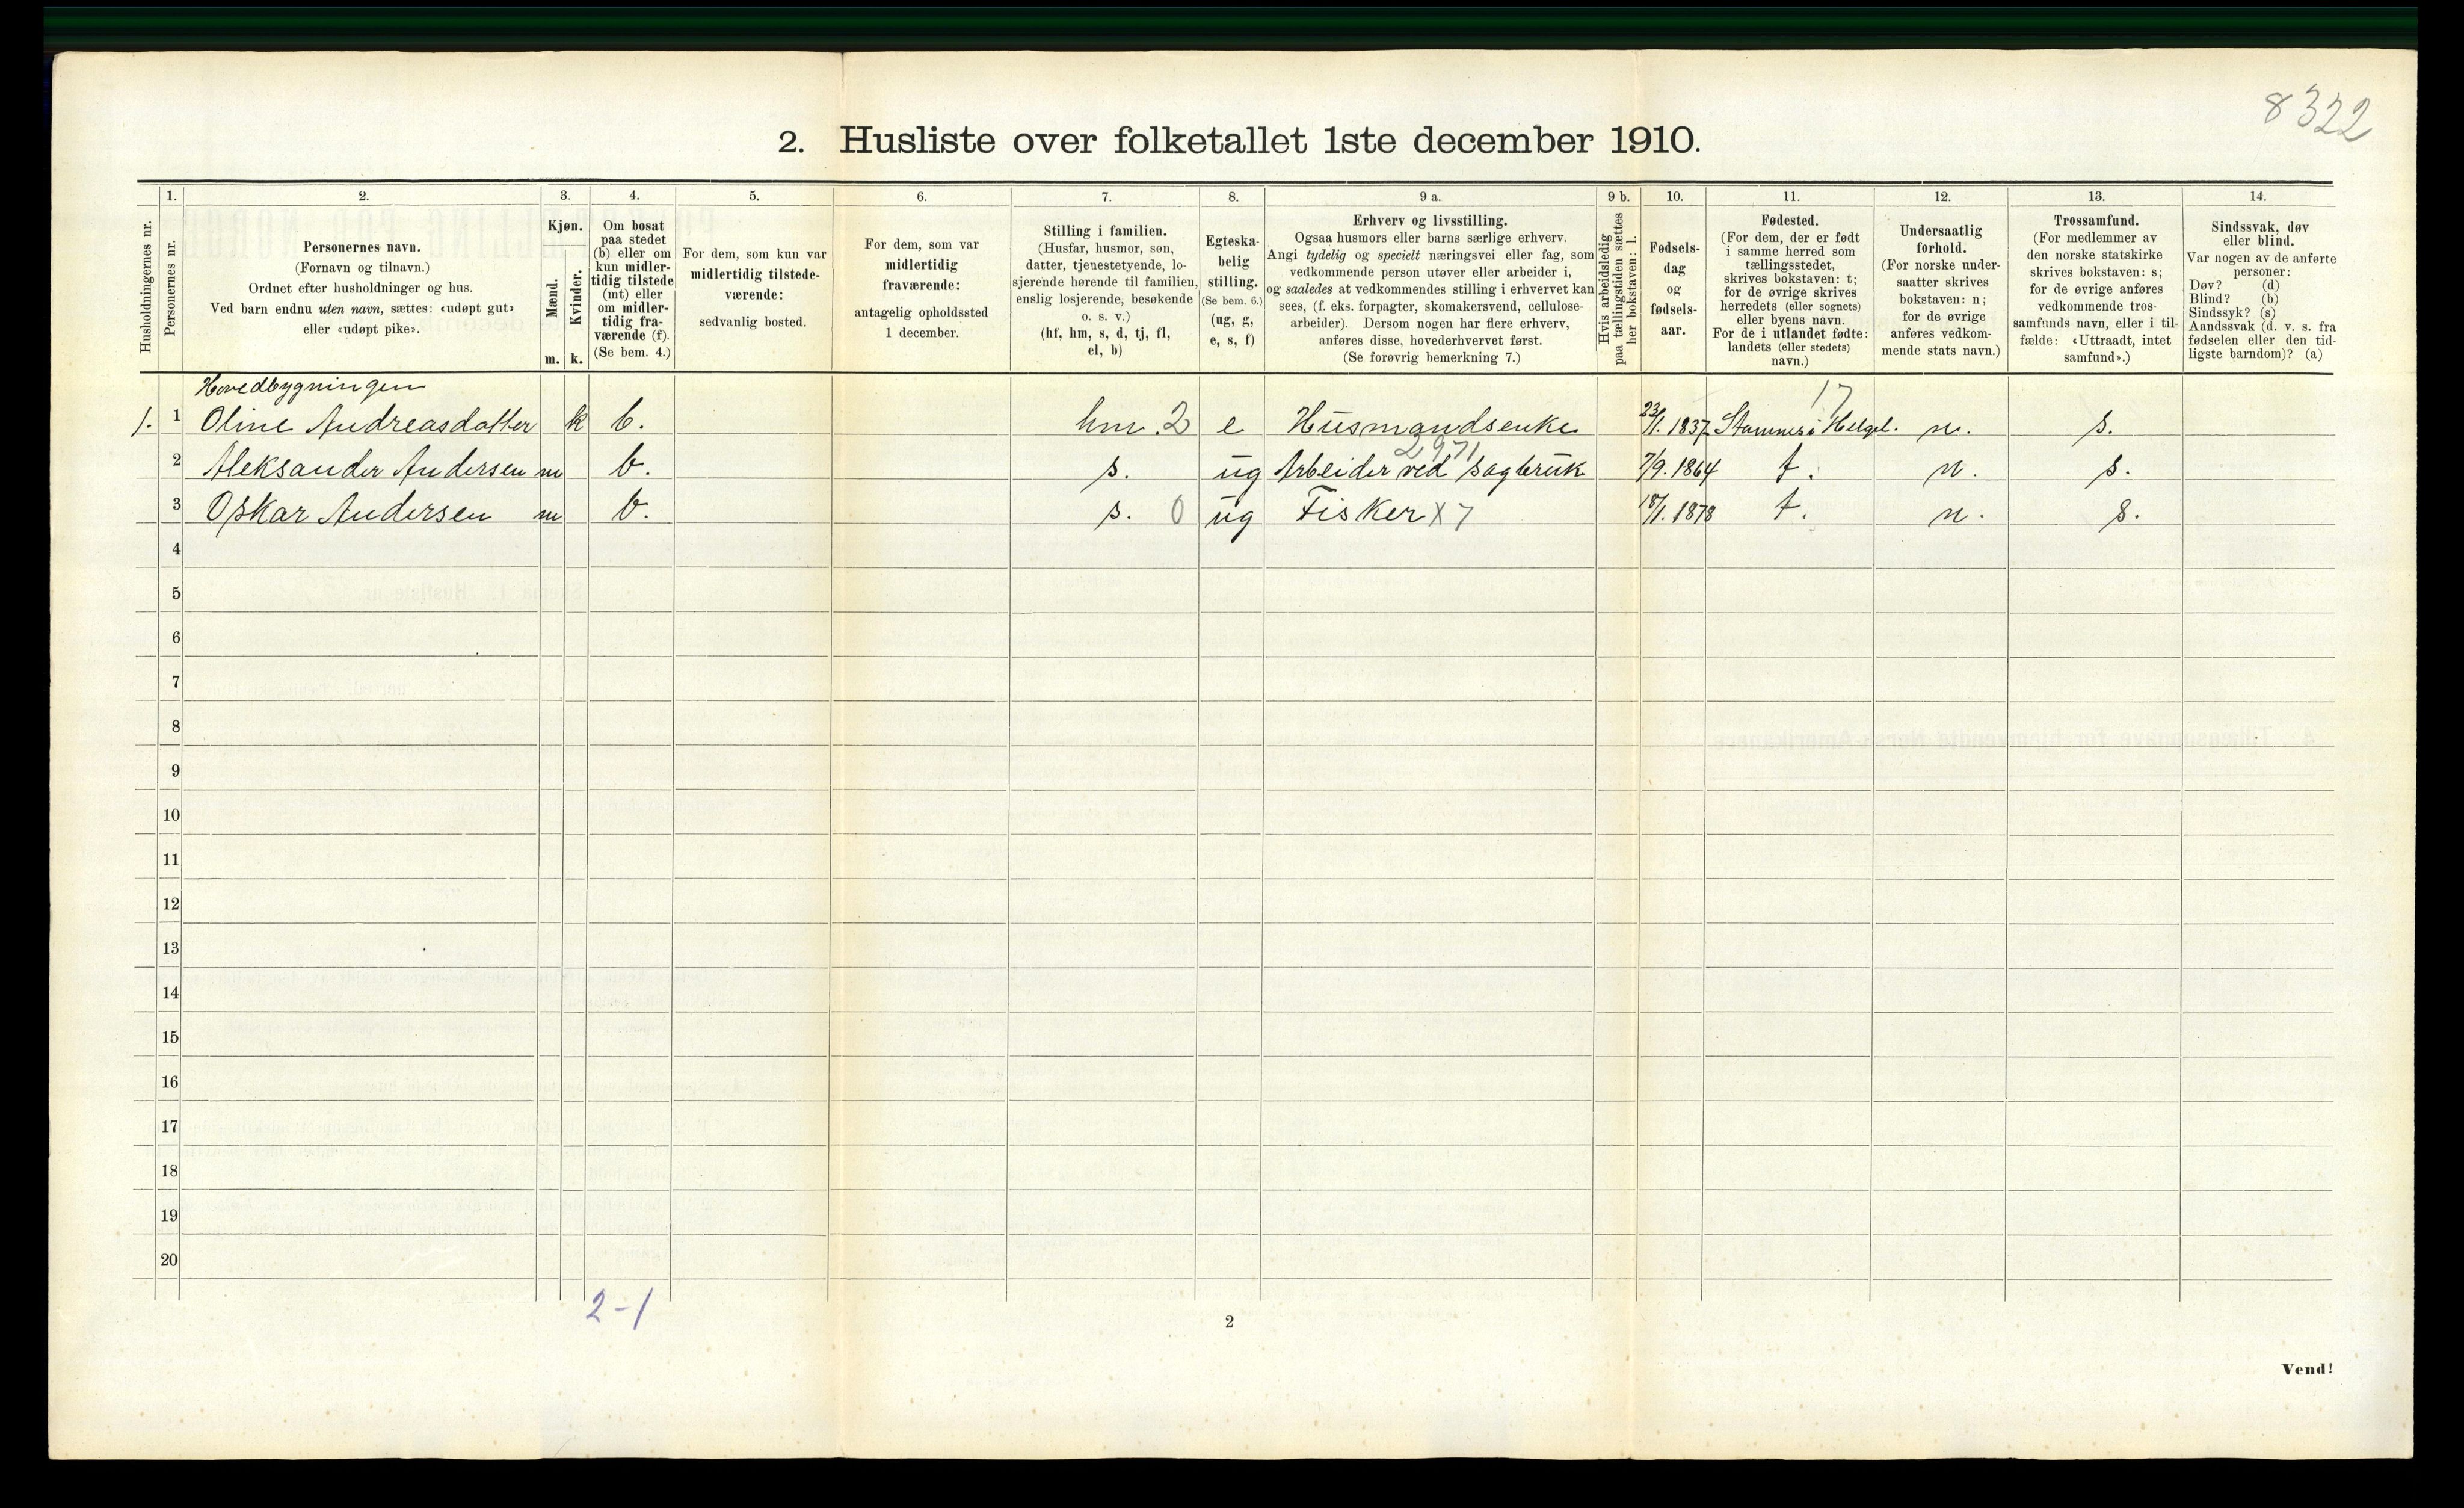 8322
2. Husliste over folketallet 1ste december 1910.
1. 2. 3. 4. 5. 6. 7. 8. 9 a. 9 b. 10. 11. 12. 13. 14.
Husholdningernes nr.
Personernes nr.
Personernes navn.
(Fornavn og tilnavn.)
Ordnet efter husholdninger og hus.
Ved barn endnu uten navn, sættes: «udøpt gut»
eller «udøpt pike».
Kjøn.
Mænd.
Kvinder.
m. k.
Om bosat
paa stedet
(b) eller om
kun midler-
tidig tilstede
(mt) eller
om midler-
tidig fra-
værende (f).
(Se bem. 4.)
For dem, som kun var
midlertidig tilstede-
værende:
sedvanlig bosted.
For dem, som var
midlertidig
fraværende:
antagelig opholdssted
1 december.
Stilling i familien.
(Husfar, husmor, søn,
datter, tjenestetyende, lo-
sjerende hørende til familien,
enslig losjerende, besøkende
o. s. v.)
(hf, hm, s, d, tj, fl,
el, b)
Egteska-
belig
stilling.
(Se bem. 6.)
(ug, g,
e, s, f)
Erhverv og livsstilling.
Ogsaa husmors eller barns særlige erhverv.
Angi tydelig og specielt næringsvei eller fag, som
vedkommende person utøver eller arbeider i,
og saaledes at vedkommendes stilling i erhvervet kan
sees, (f. eks. forpagter, skomakersvend, cellulose-
arbeider). Dersom nogen har flere erhverv,
anføres disse, hovederhvervet først.
(Se forøvrig bemerkning 7.)
Hvis arbeidsledig
paa tællingstiden sættes
her bokstaven: l.
Fødsels-
dag
og
fødsels-
aar.
Fødested.
(For dem, der er født
i samme herred som
tællingsstedet,
skrives bokstaven: t;
for de øvrige skrives
herredets (eller sognets)
eller byens navn.
For de i utlandet fødte:
landets (eller stedets)
navn.)
Undersaatlig
forhold.
(For norske under-
saatter skrives
bokstaven: n;
for de øvrige
anføres vedkom-
mende stats navn.)
Trossamfund.
(For medlemmer av
den norske statskirke
skrives bokstaven: s;
for de øvrige anføres
vedkommende tros-
samfunds navn, eller i til-
fælde: «Uttraadt, intet
samfund».)
Sindssvak, døv
eller blind.
Var nogen av de anførte
personer:
Døv? (d)
Blind? (b)
Sindssyk? (s)
Aandssvak (d. v. s. fra
fødselen eller den tid-
ligste barndom)? (a)
Hovedbygningen
17
1. 1 Oline Andreasdatter k b. hm. 2 e Husmandsenke 23/1. 1837 Stamnes i Helgel. n. s.
2971
2 Aleksander Andersen m b. s. ug Arbeider ved sagbruk 7/9. 1864 t. n. s.
3 Oskar Andersen m b. s. 0 ug Fisker X 7 18/1. 1878 t. n. s.
4
5
6
7
8
9
10
11
12
13
14
15
16
17
18
19
20
2-1
2
Vend!